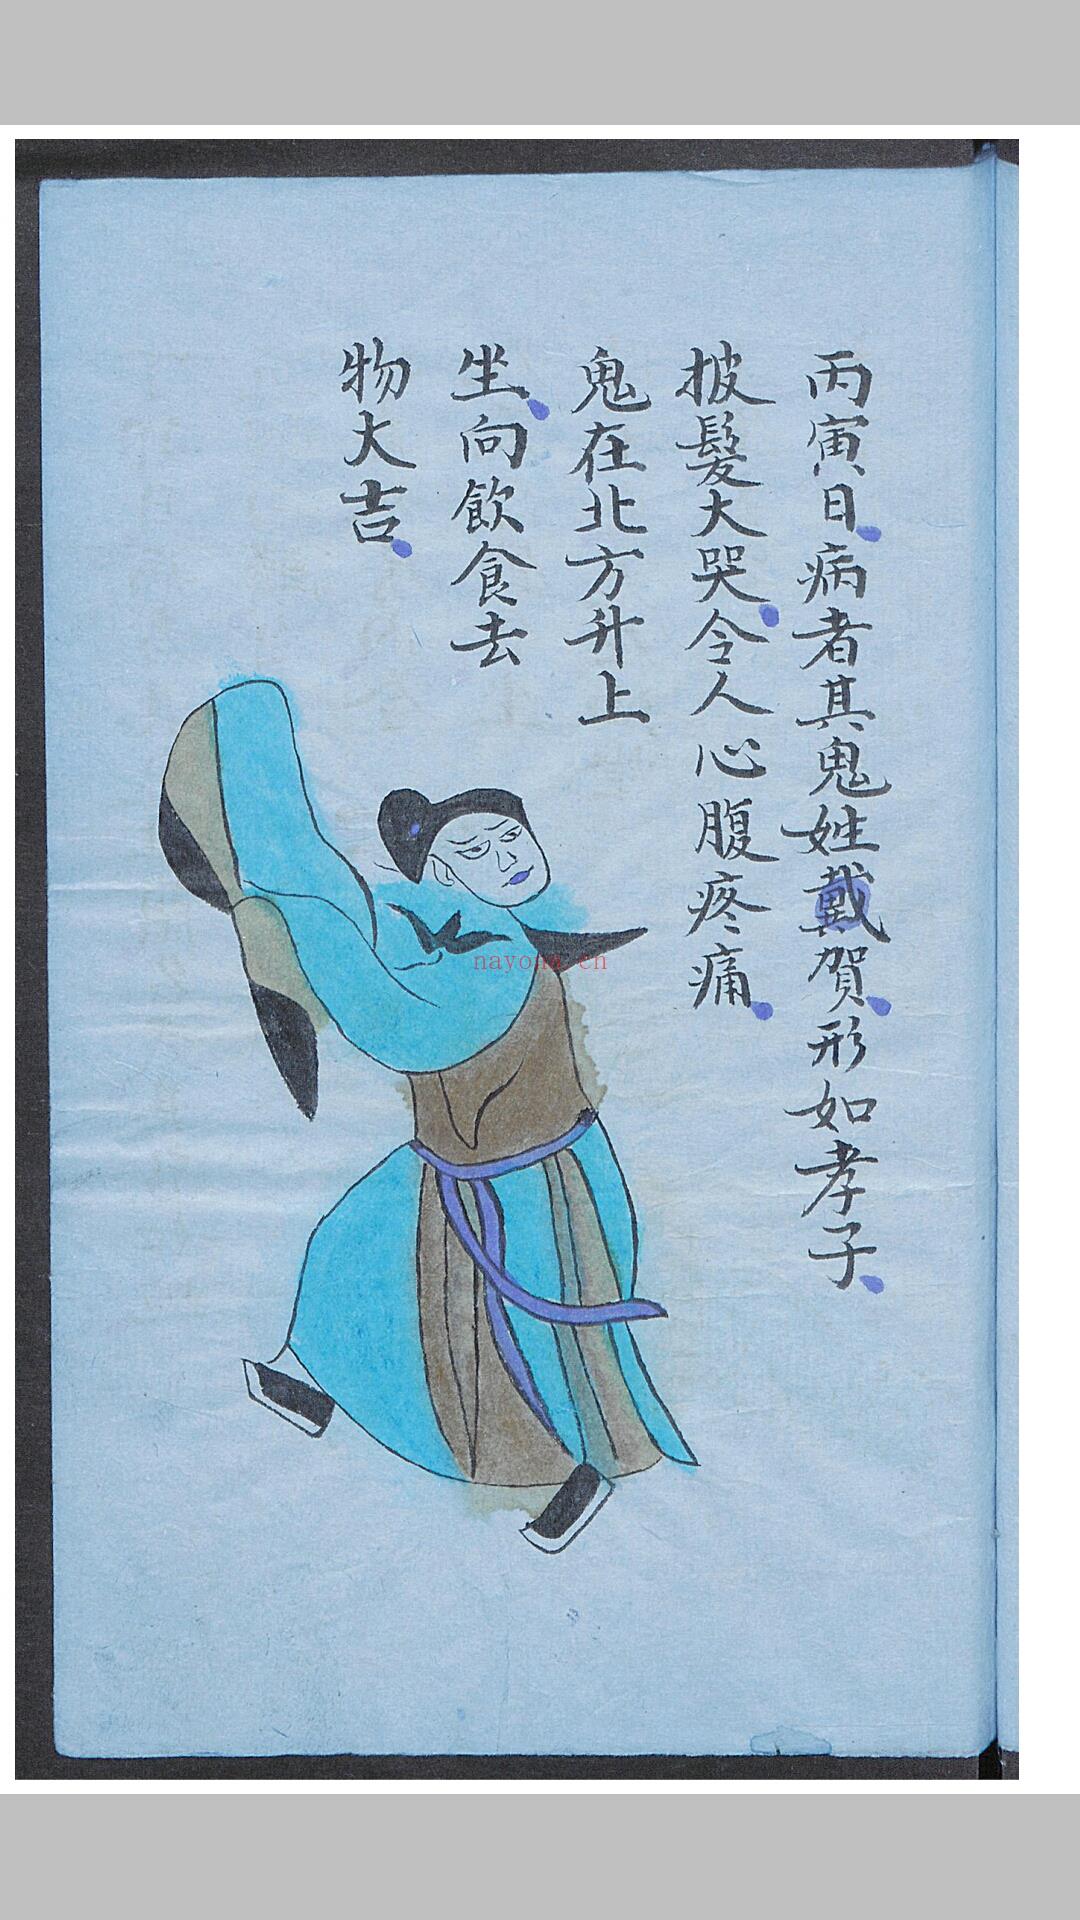 丙寅日病者其鬼姓戴賀形如孝子
披髮大哭令人心腹疼痛
鬼在北方升上
坐向飲食去
物大吉
nayona.cn